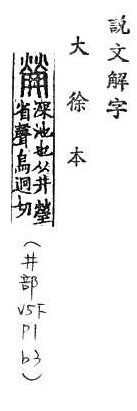 說文解字
大徐本
深池也从井瑩
省聲烏迥切
(井部V5F P1 b3)